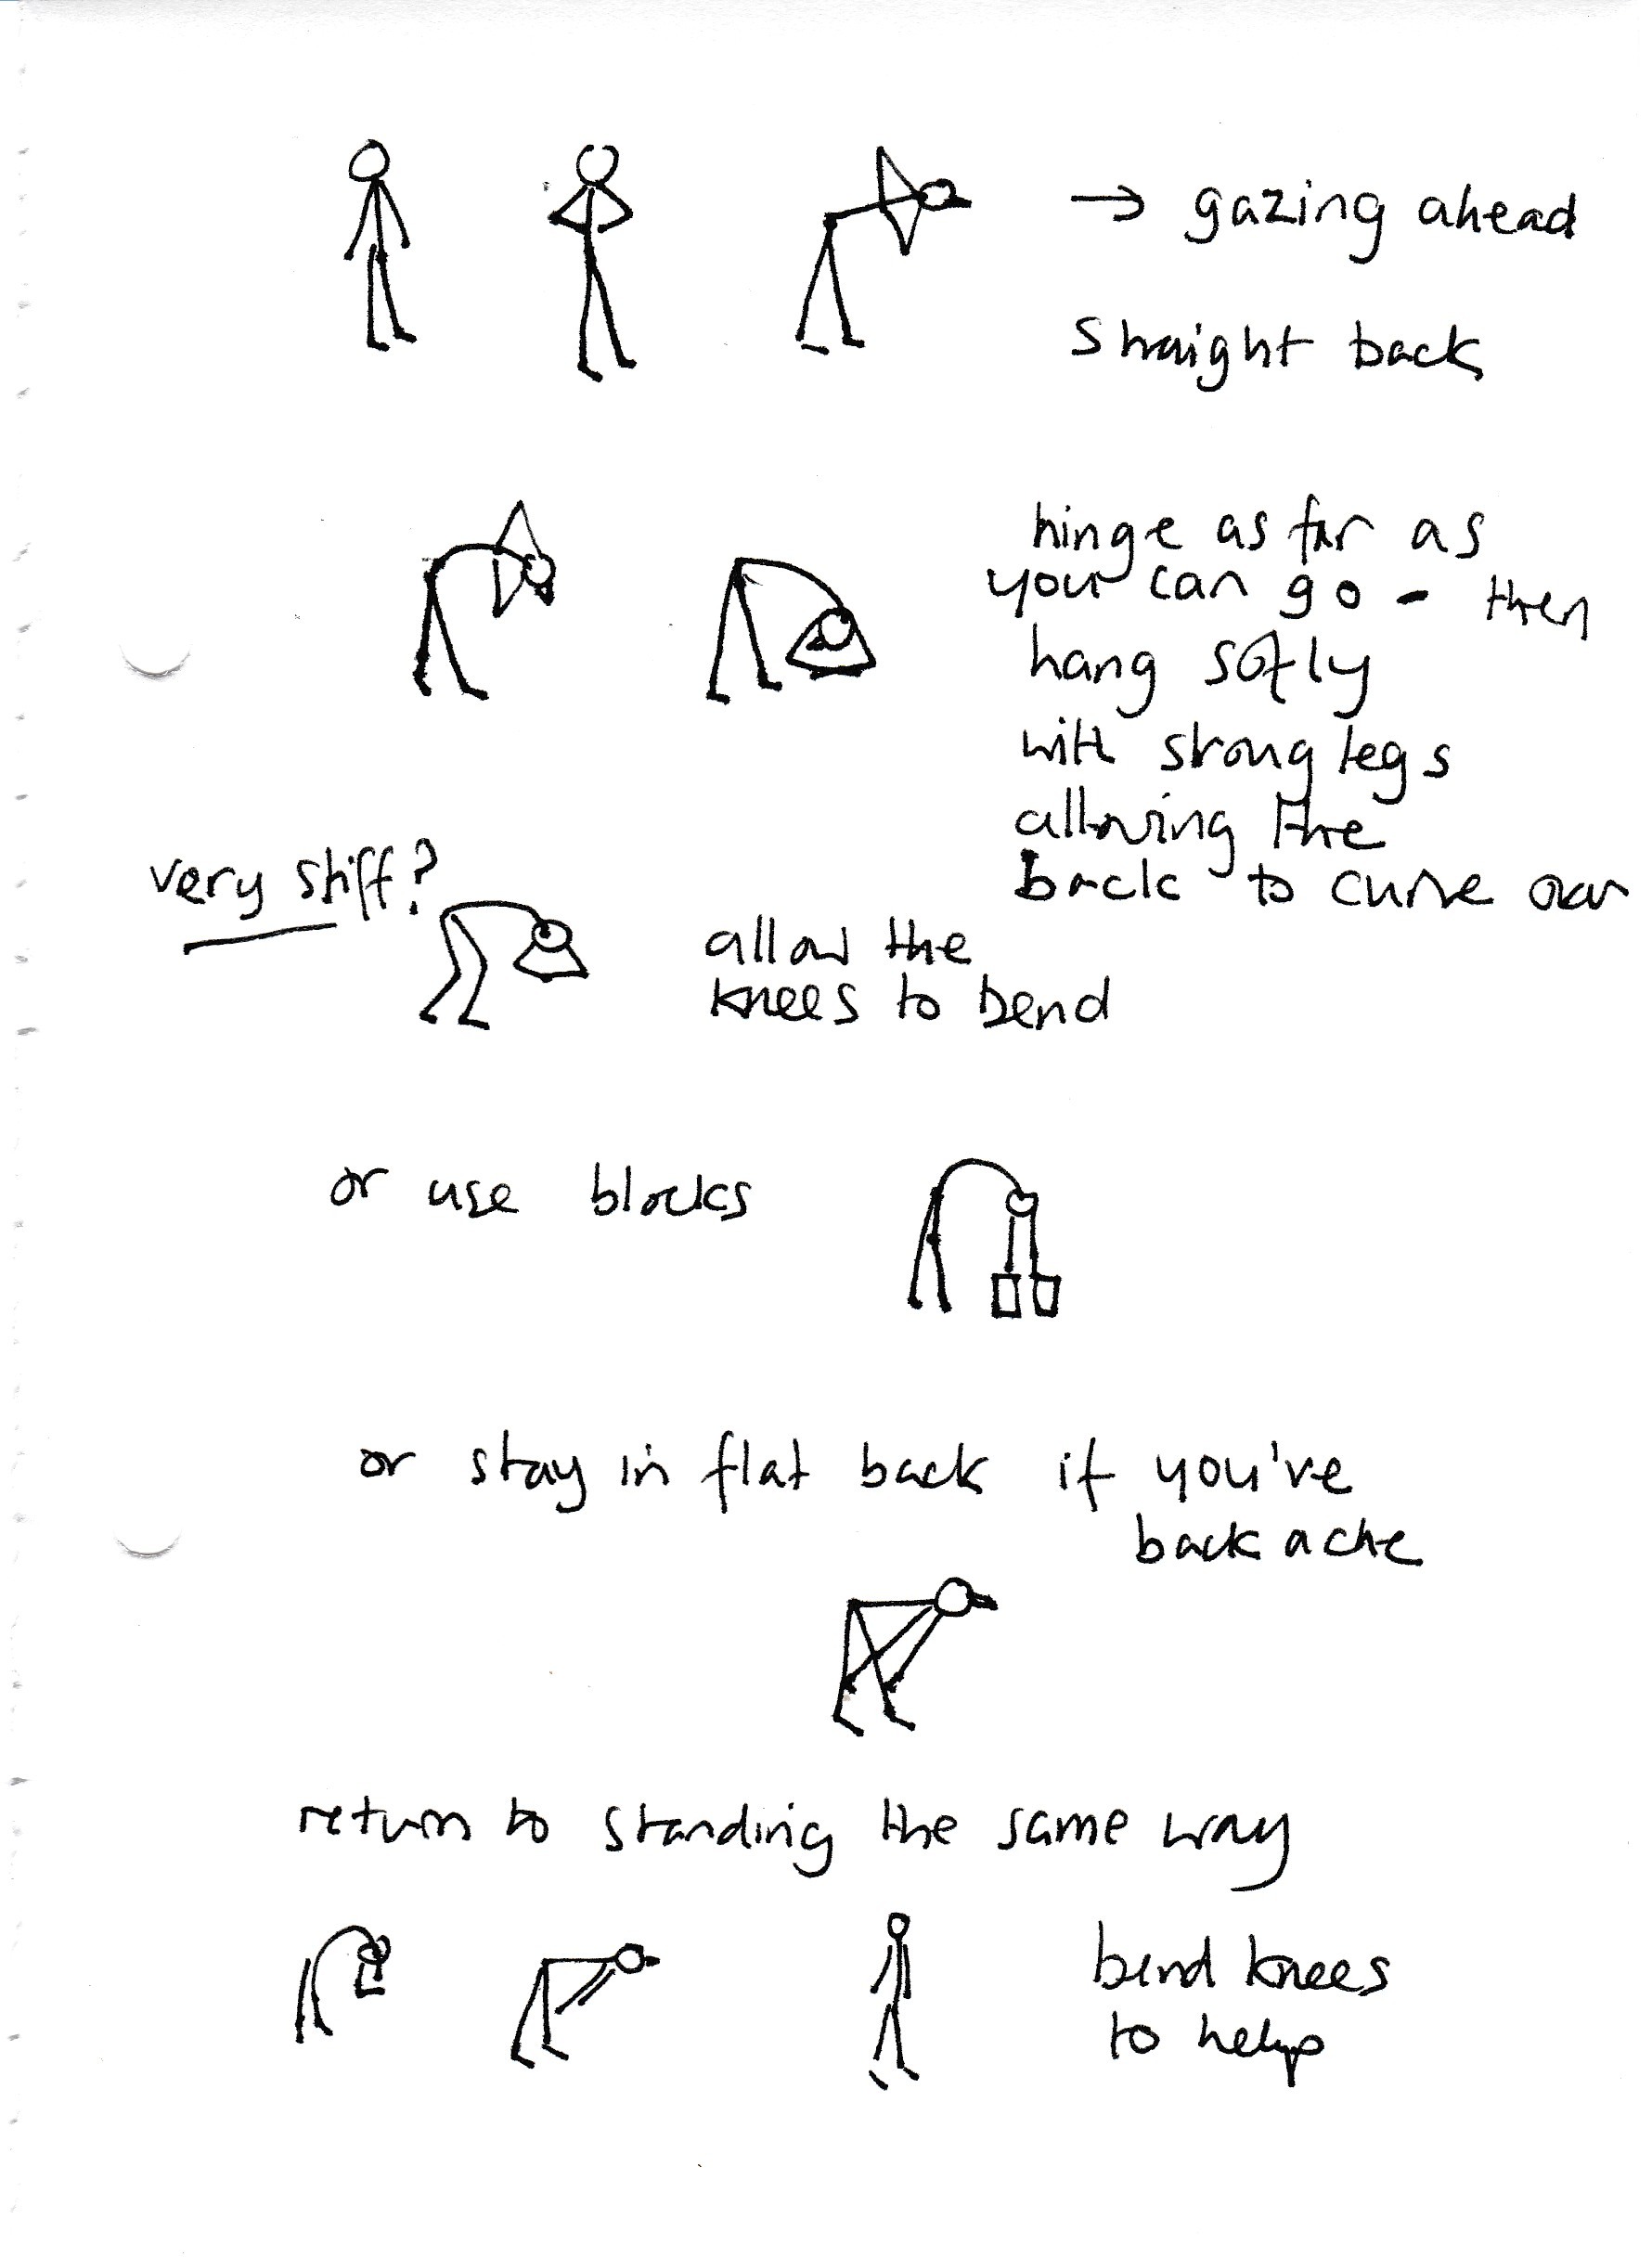 → gazing ahead
Straight back
hinge as far as
you can go - then
hang softly
with strong legs
allowing the
back to curve over
very stiff?
allow the
knees to bend
or use blocks
or stay in flat back if you've
back ache
return to standing the same way
bend knees
to help